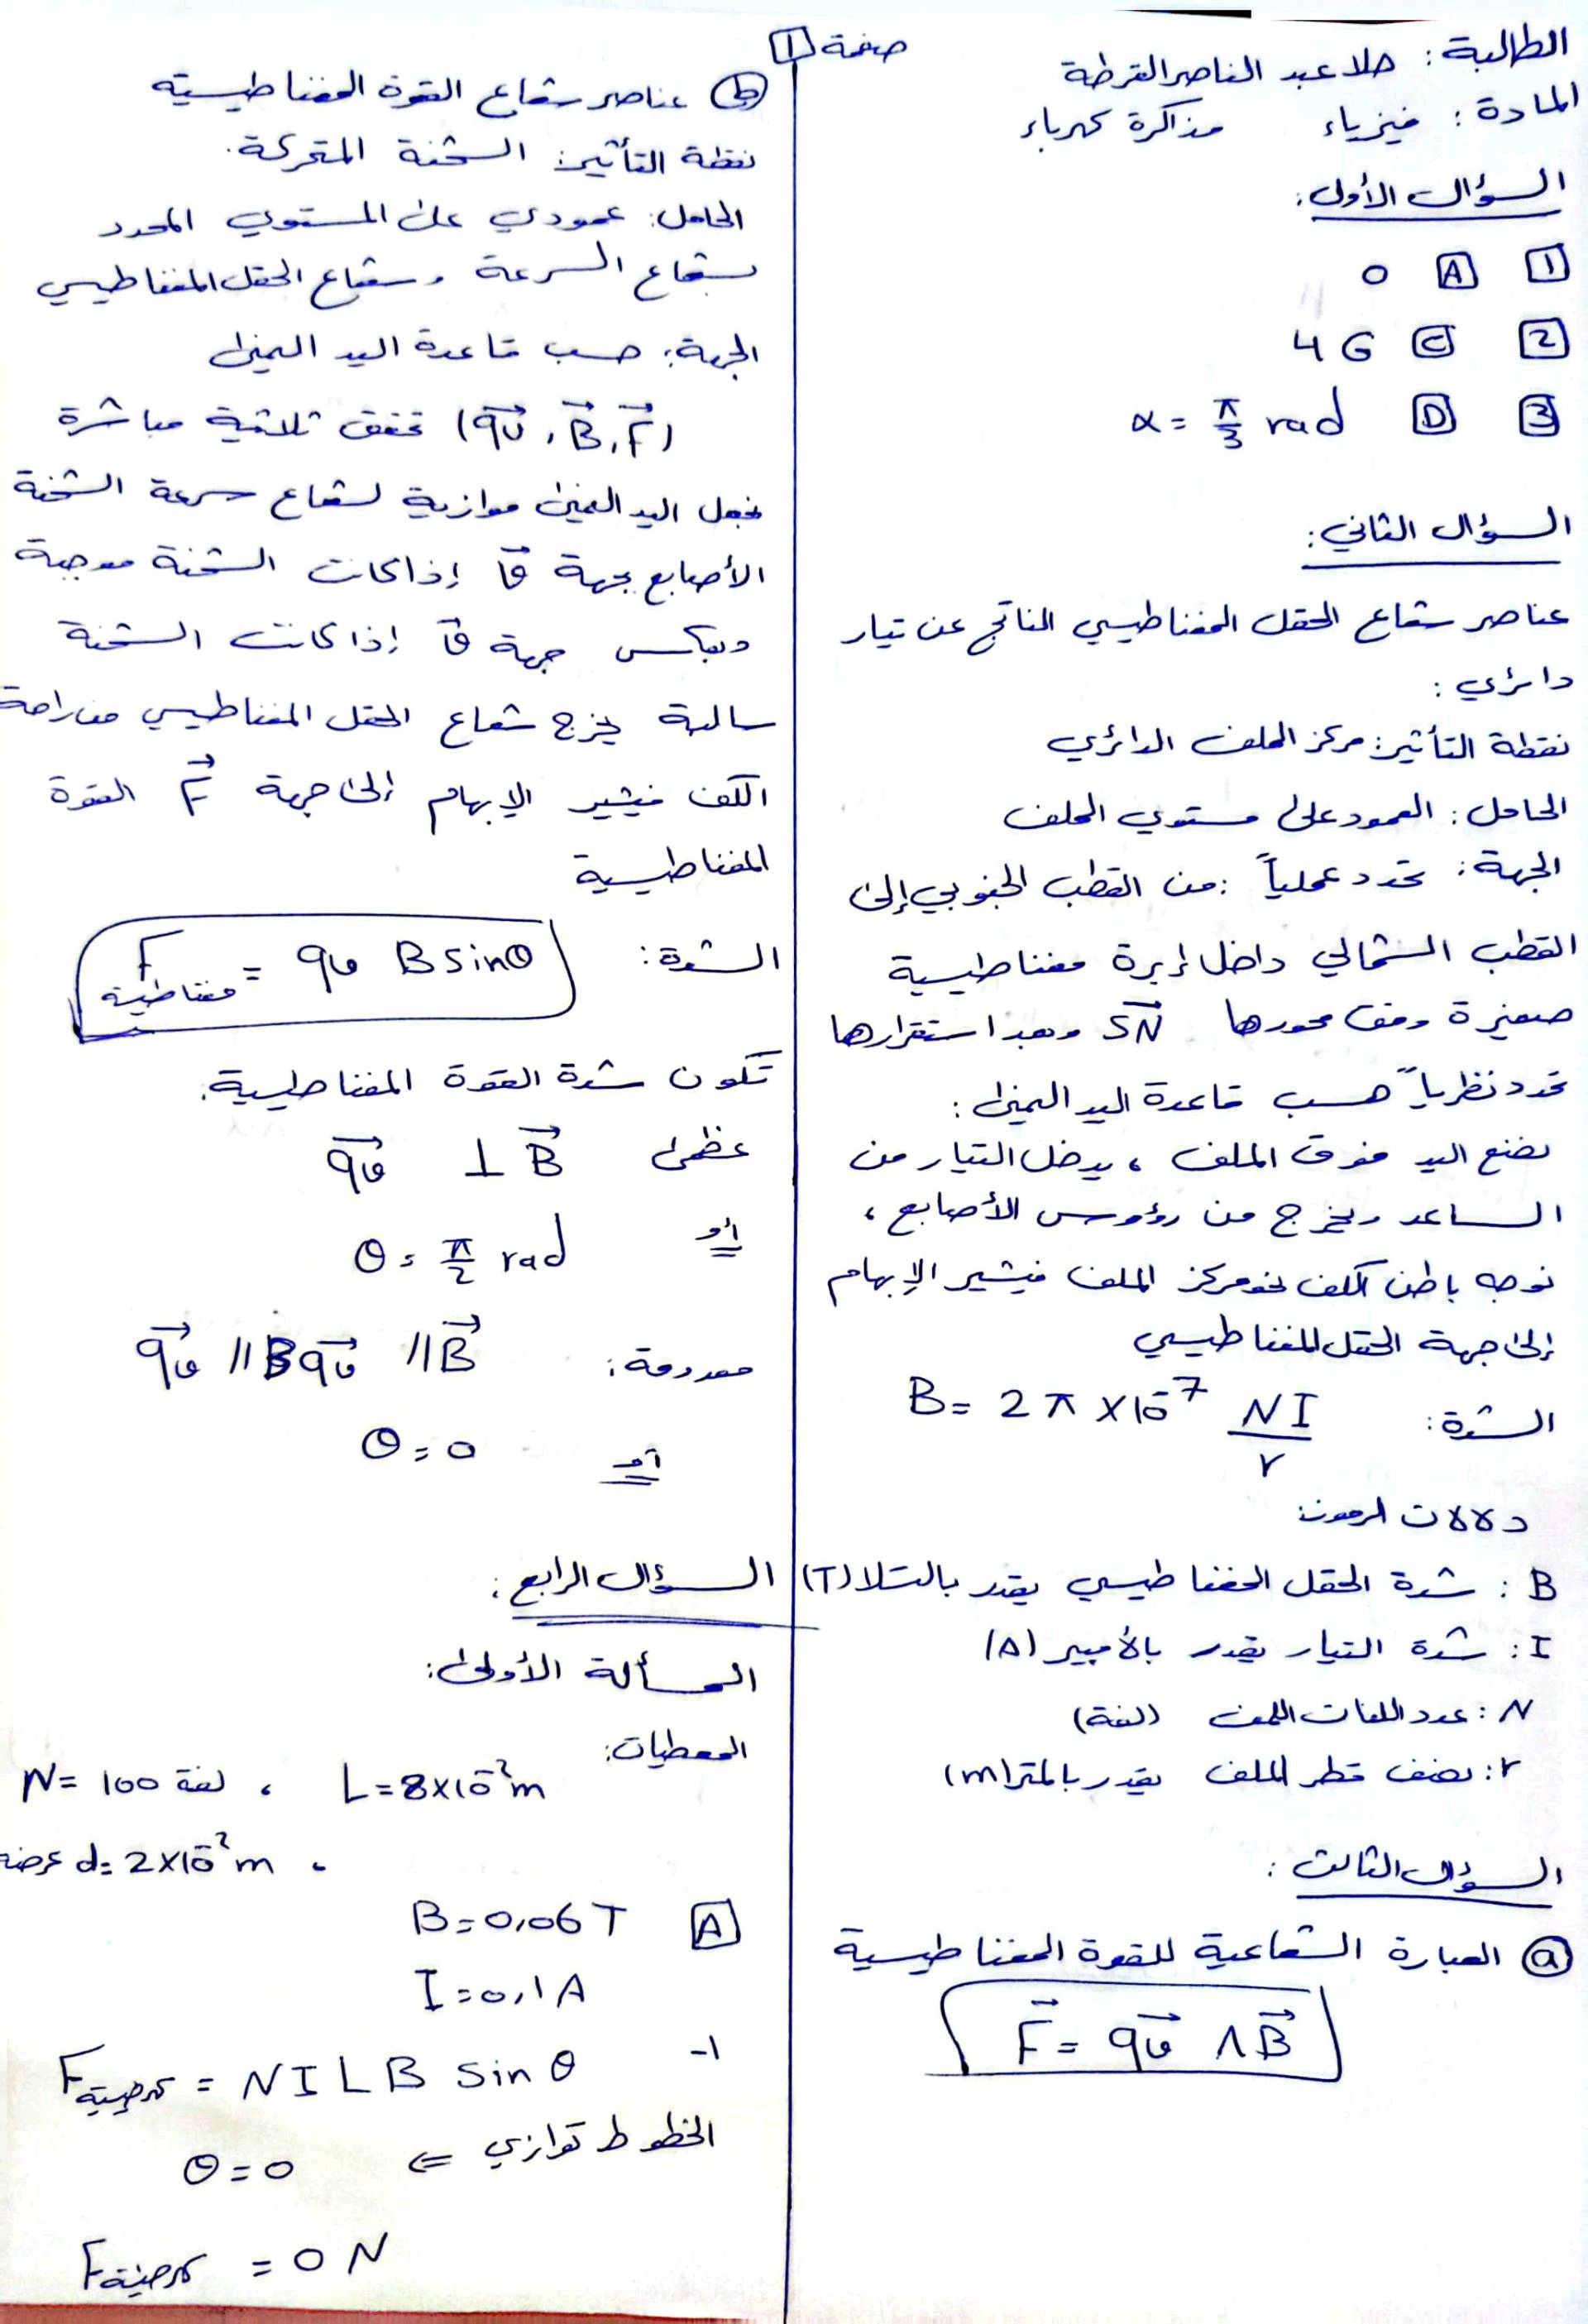 صفحة 1
الطالبة: حلا عبد الناصر القرطة
المادة: فيزياء مذاكرة كهرباء
السؤال الأول:
1 A 0
2 C 4G
3 D α = π/3 rad
السؤال الثاني:
عناصر شعاع الحقل المغناطيسي الناتج عن تيار
دائري:
نقطة التأثير: مركز الملف الدائري
الحامل: العمود على مستوي الملف
الجهة: تحدد عملياً: من القطب الجنوبي إلى
القطب الشمالي داخل إبرة مغناطيسية
صغيرة وفق محورها SN وبعد استقرارها
تحدد نظرياً حسب قاعدة اليد اليمنى:
نضع اليد فوق الملف، يدخل التيار من
الساعد ويخرج من رؤوس الأصابع،
نوجه باطن الكف نحو مركز الملف فيشير الإبهام
إلى جهة الحقل المغناطيسي
الشدة: B = 2π × 10⁻⁷ NI/r
دلالات الرموز:
B: شدة الحقل المغناطيسي يقدر بالتسلا (T)
I: شدة التيار يقدر بالأمبير (A)
N: عدد اللفات الملف (لفة)
r: نصف قطر الملف يقدر بالمتر (m)
السؤال الثالث:
a العبارة الشعاعية للقوة المغناطيسية
F⃗ = qv⃗ ∧ B⃗
b عناصر شعاع القوة المغناطيسية
نقطة التأثير: الشحنة المتحركة.
الحامل: عمودي على المستوي المحدد
بشعاع السرعة وشعاع الحقل المغناطيسي
الجهة: حسب قاعدة اليد اليمنى
(qv⃗, B⃗, F⃗) تحقق ثلاثية مباشرة
نجعل اليد اليمنى موازية لشعاع سرعة الشحنة
الأصابع بجهة v⃗ إذا كانت الشحنة موجبة
وبعكس جهة v⃗ إذا كانت الشحنة
سالبة يخرج شعاع الحقل المغناطيسي من راحة
الكف فيشير الإبهام إلى جهة F⃗ القوة
المغناطيسية
الشدة: F مغناطيسية = qv B sinθ
تكون شدة القوة المغناطيسية:
عظمى qv⃗ ⊥ B⃗
أو θ = π/2 rad
معدومة: qv⃗ // B qv⃗ // B⃗
أو θ = 0
السؤال الرابع:
المسألة الأولى:
المعطيات:
N = 100 لفة، L = 8×10⁻² m
، d = 2×10⁻² m عرضه
A B = 0,06 T
I = 0,1 A
1- F كهرطيسية = N I L B sin θ
الخطوط توازي ⇐ θ = 0
F كهرطيسية = 0 N